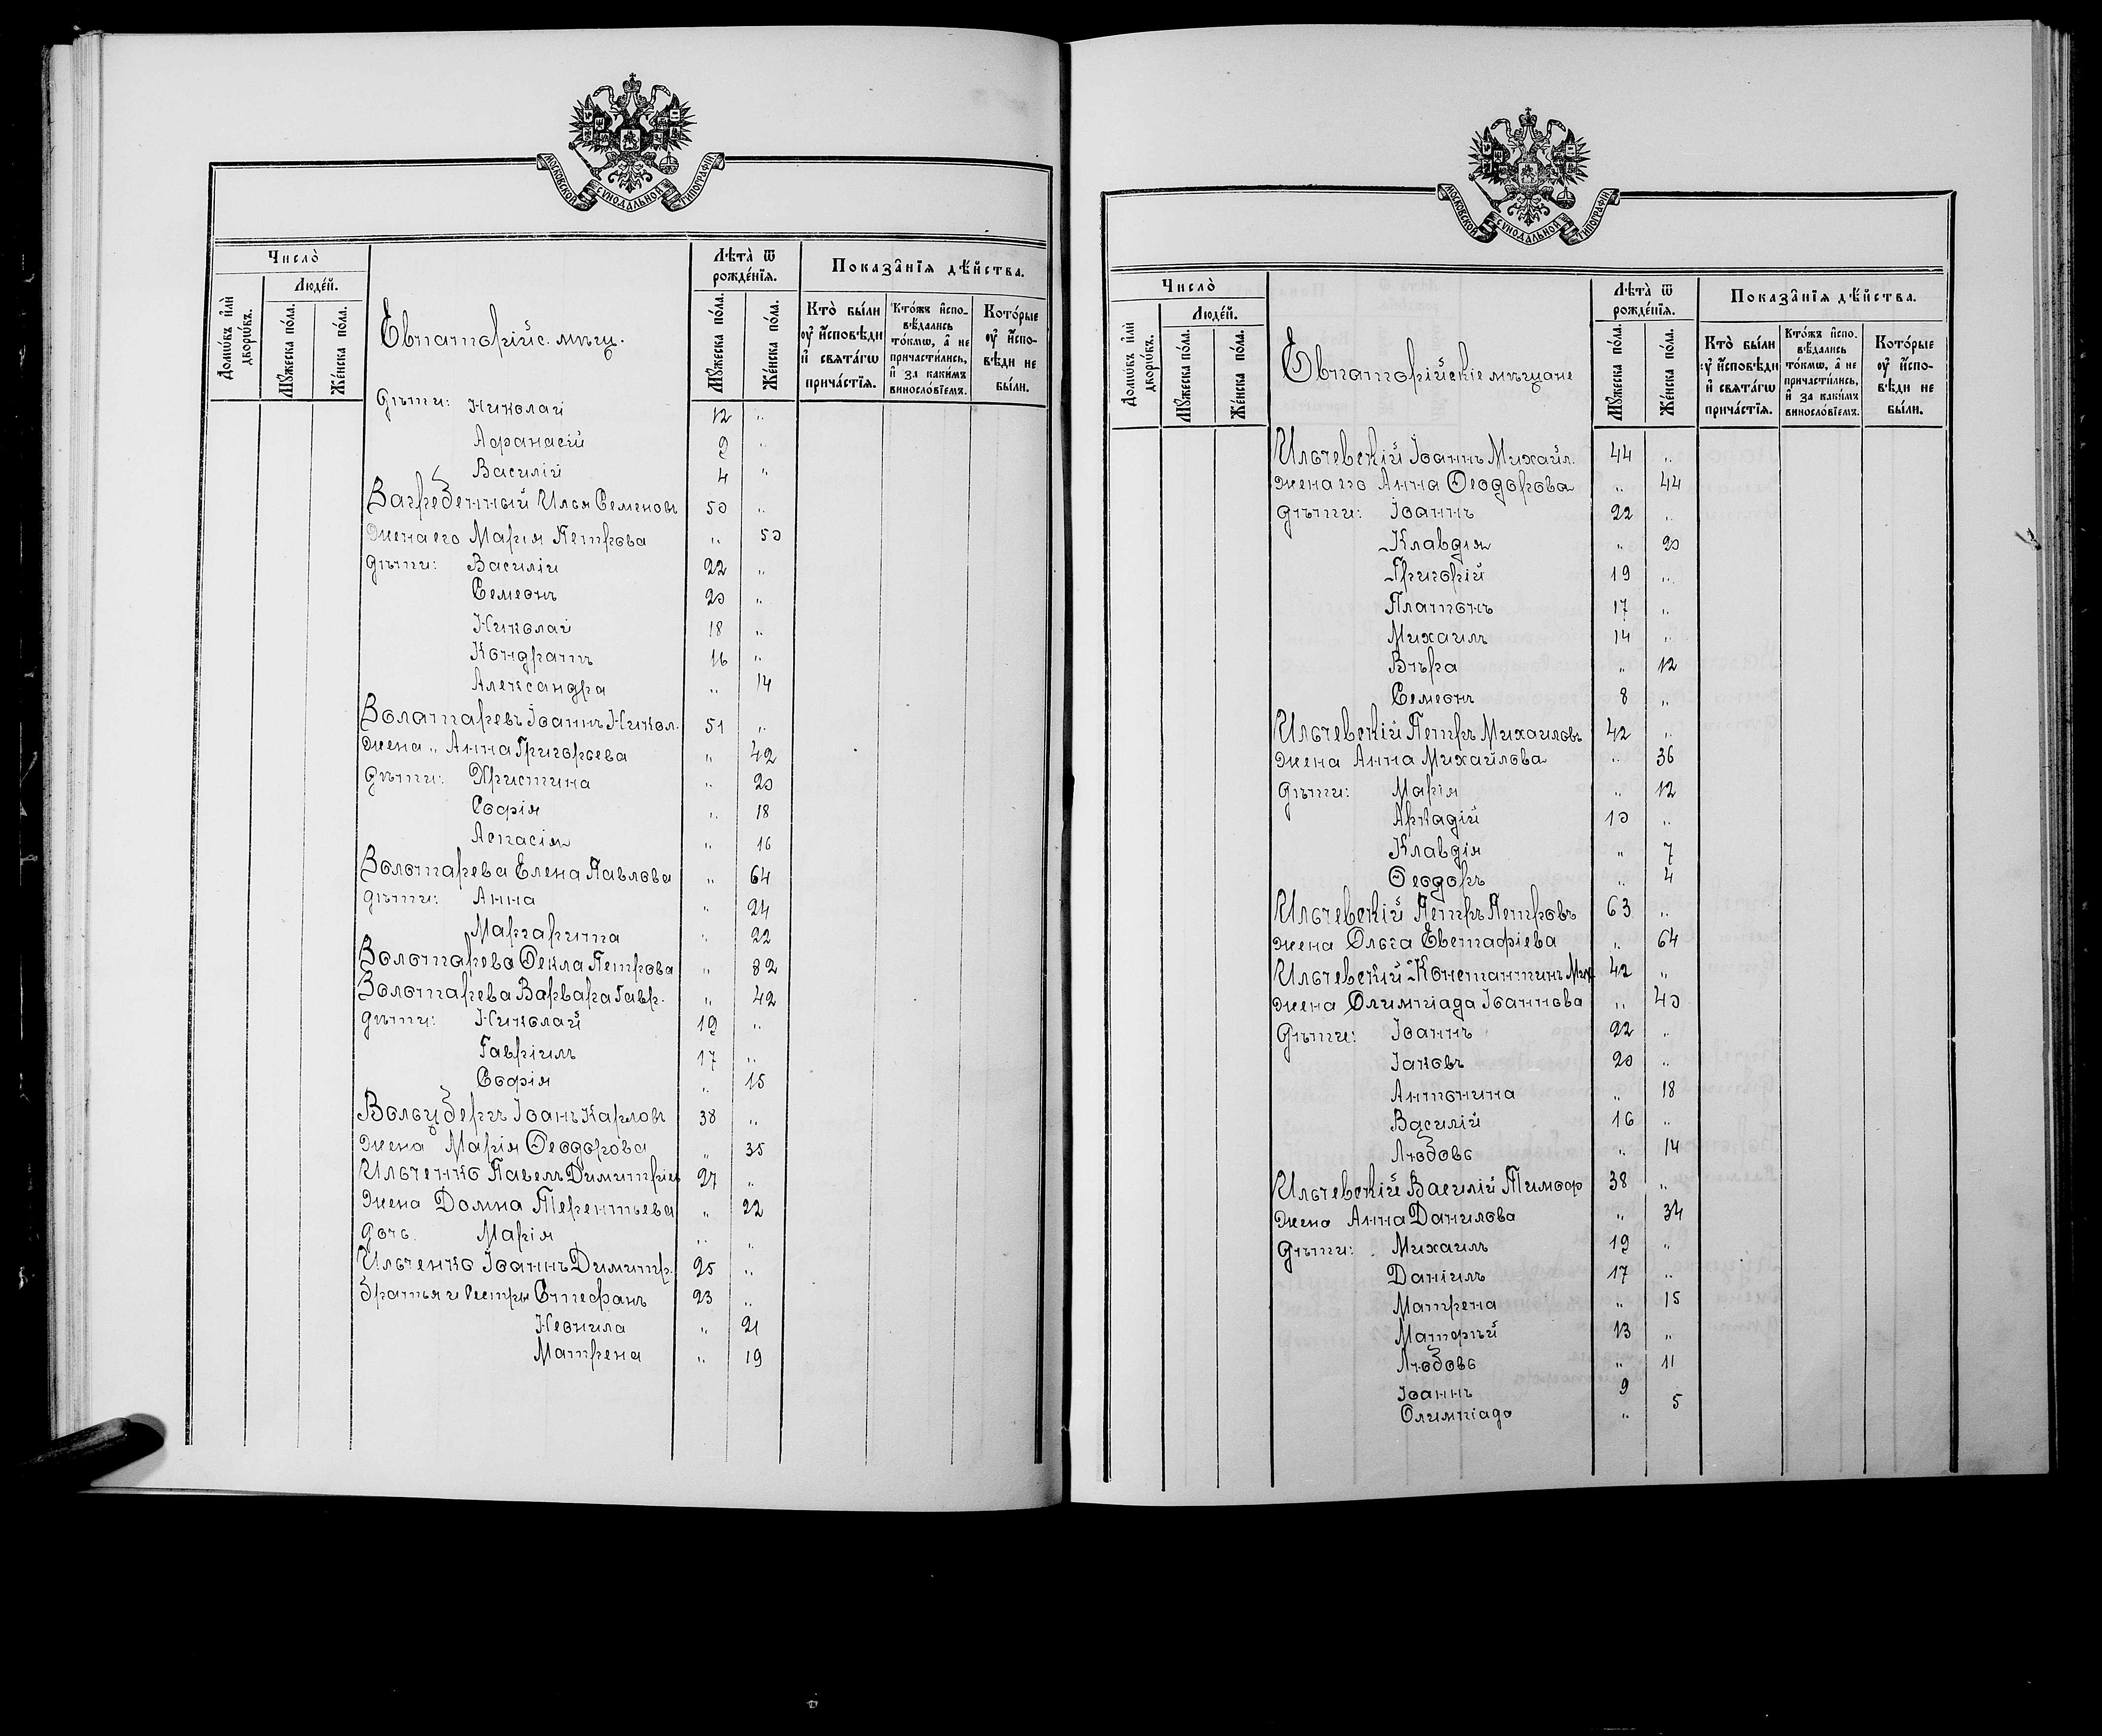 МОСКОВСКОЙ СУНОДАЛЬНОЙ ТИПОГРАФІИ
Число̀
Людéй.
Домѡ́въ и҆лѝ дворѡ́въ.
Мꙋ́жеска по́ла.
Же́нска по́ла.
Евпаторійс. мѣщ.
Лѣта̀ ѿ рожде́нїѧ.
Мꙋ́жеска по́ла.
Же́нска по́ла.
Показа̑нїѧ дѣ́йства.
Кто̀ бы́ли ᲂу҆ и҆́сповѣди и҆ свѧта́гѡ прича́стїѧ.
Кто́жъ и҆спо-вѣ́дались то́кмѡ, а҆ не причасти́лись, и҆ за каки́мъ винослов́їемъ.
Кото́рые ᲂу҆ и҆́спо-вѣди не бы́ли.
дѣти: Николай 12 „
Афанасій 9 „
Василій 4 „
Загребенный Илья Семеновъ 50 „
Жена его Марія Петрова „ 50
дѣти: Василій 22 „
Семеонъ 20 „
Николай 18 „
Кондратъ 16 „
Александра „ 14
Золотаревъ Іоаннъ Никол. 51 „
Жена „ Анна Григорьева „ 42
дѣти: Христина „ 20
Софія „ 18
Аспасія „ 16
Золотарева Елена Павлова „ 64
дѣти: Анна „ 24
Маргарита „ 22
Золотарева Ѳекла Петрова „ 82
Золотарева Варвара Гавр. „ 42
дѣти: Николай 19 „
Гавріилъ 17 „
Софія „ 15
Зольцбергъ Іоанъ Карловъ 38 „
Жена Марія Ѳеодорова „ 35
Ильченко Павелъ Димитріев 27 „
Жена Домна Терентьева „ 22
дочь. Марія „ „
Ильченко Іоаннъ Димитр. 25 „
братья и сестры Стефанъ 23 „
Неонила „ 21
Матрена „ 19
МОСКОВСКОЙ СУНОДАЛЬНОЙ ТИПОГРАФІИ
Число̀
Людéй.
Домѡ́въ и҆лѝ дворѡ́въ.
Мꙋ́жеска по́ла.
Же́нска по́ла.
Евпаторійскіе мѣщане
Лѣта̀ ѿ рожде́нїѧ.
Мꙋ́жеска по́ла.
Же́нска по́ла.
Показа̑нїѧ дѣ́йства.
Кто̀ бы́ли ᲂу҆ и҆́сповѣди и҆ свѧта́гѡ прича́стїѧ.
Кто́жъ и҆спо-вѣ́дались то́кмѡ, а҆ не причасти́лись, и҆ за каки́мъ винослов́їемъ.
Кото́рые ᲂу҆ и҆́спо-вѣди не бы́ли.
Ильчевскій Іоаннъ Михайл. 44 „
Жена его Анна Ѳеодорова „ 44
дѣти: Іоаннъ 22 „
Клавдія „ 20
Григорій 19 „
Платонъ 17 „
Михаилъ 14 „
Вѣра „ 12
Семеонъ 8 „
Ильчевскій Петръ Михаиловъ 42 „
Жена Анна Михайлова „ 36
дѣти: Марія „ 12
Аркадій 10 „
Клавдія „ 7
Ѳеодоръ „ 4
Ильчевскій Петръ Петровъ 63 „
Жена Ольга Евстафіева „ 64
Ильчевскій Константинъ Мих 42 „
Жена Олимпіада Іоаннова „ 40
Дѣти: Іоаннъ 22 „
Іаковъ 20 „
Антонина „ 18
Василій 16 „
Любовь „ 14
Ильчевскій Василій Тимоф 38 „
Жена Анна Данилова „ 34
Дѣти: Михаилъ 19 „
Даніилъ 17 „
Матрена „ 15
Матфѣй 13 „
Любовь „ 11
Іоаннъ 9
Олимпіада „ 5